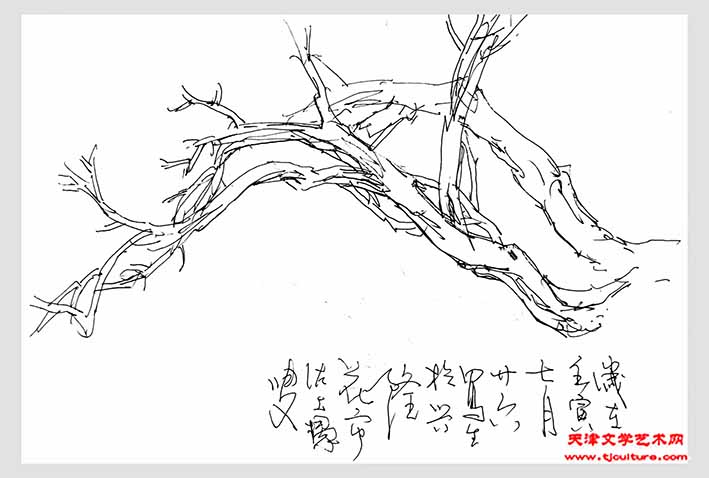 歲在
壬寅
七月
廿六
寫生
於兴
隆
花市
沽上
天津文学艺术网
www.tjculture.com